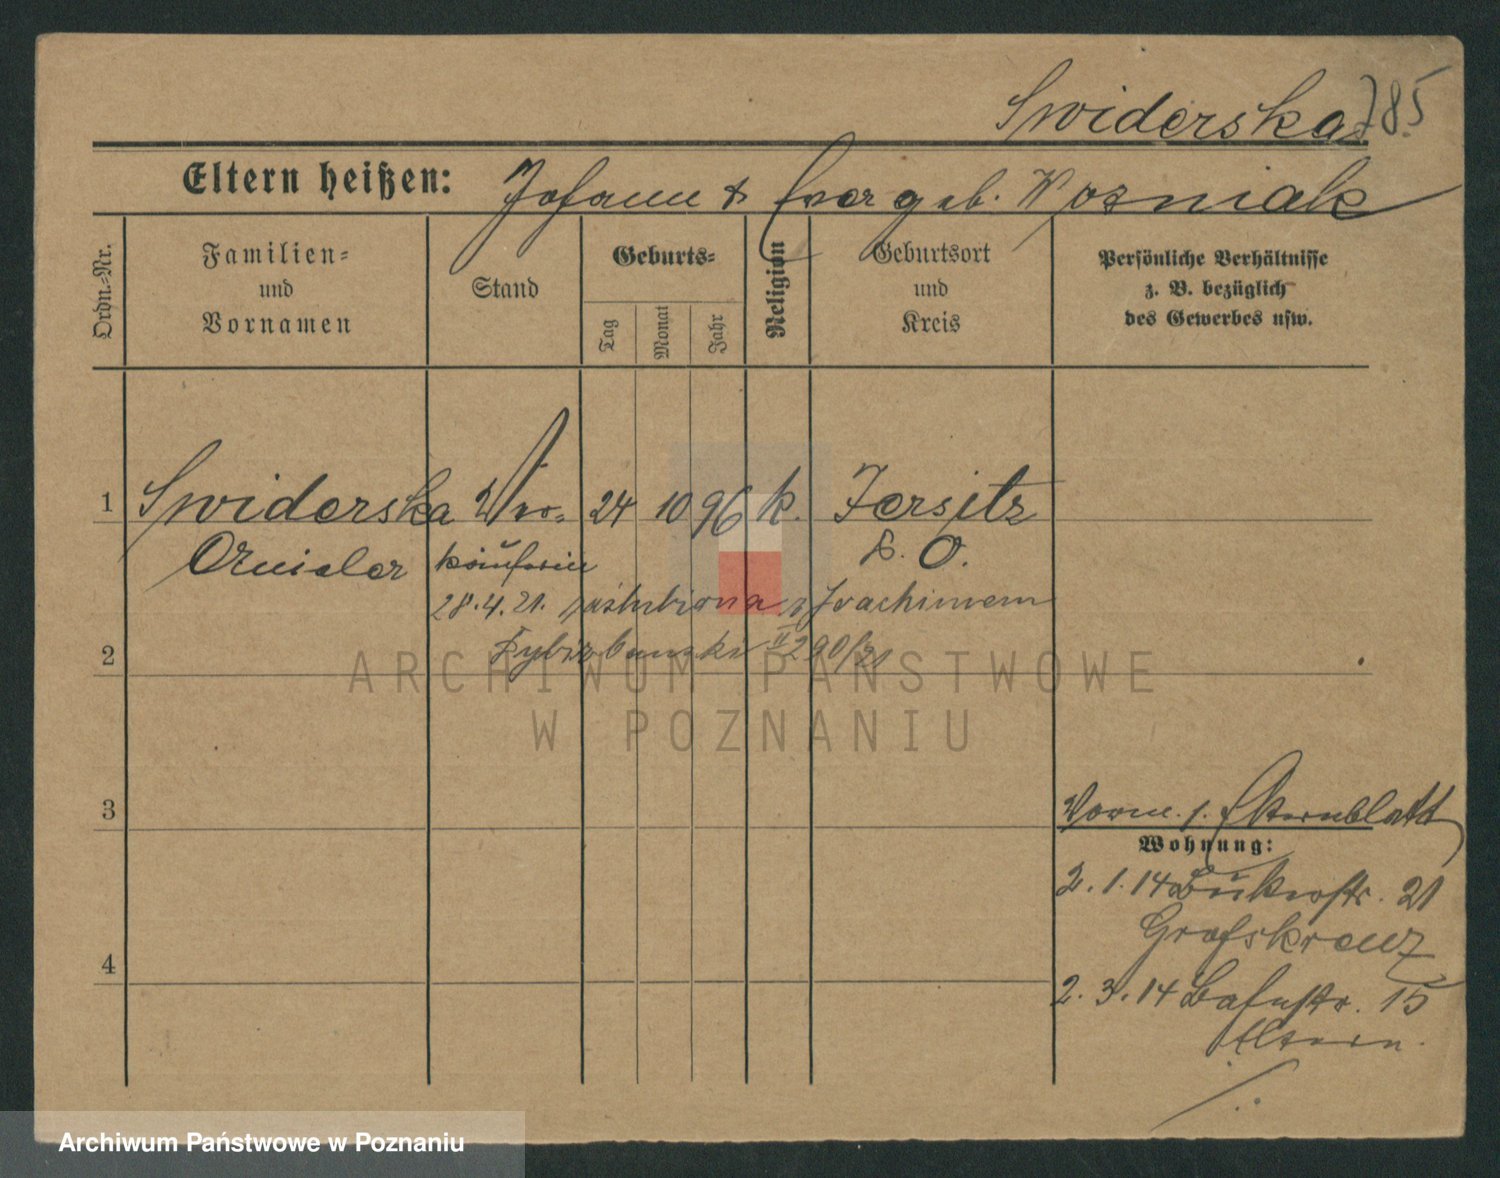 Swiderska 785
Eltern heißen: Johann & Eva geb. Wozniak
Ordn.-Nr.
Familien- und Vornamen
Stand
Geburts-
Tag
Monat
Jahr
Religion
Geburtsort und Kreis
Persönliche Verhältnisse
z. B. bezüglich
des Gewerbes usw.
1 Swiderska 24 10 96 k. Jersitz
P. O.
28.4.21. zaślubiona z Joachimem
II 290/21
2
ARCHIWUM PAŃSTWOWE
W POZNANIU
3
Vorm. s. Elternblatt
Wohnung:
2.1.14 Bukerstr. 21
4
2.3.14 Bahnstr. 15
Eltern.
Archiwum Państwowe w Poznaniu